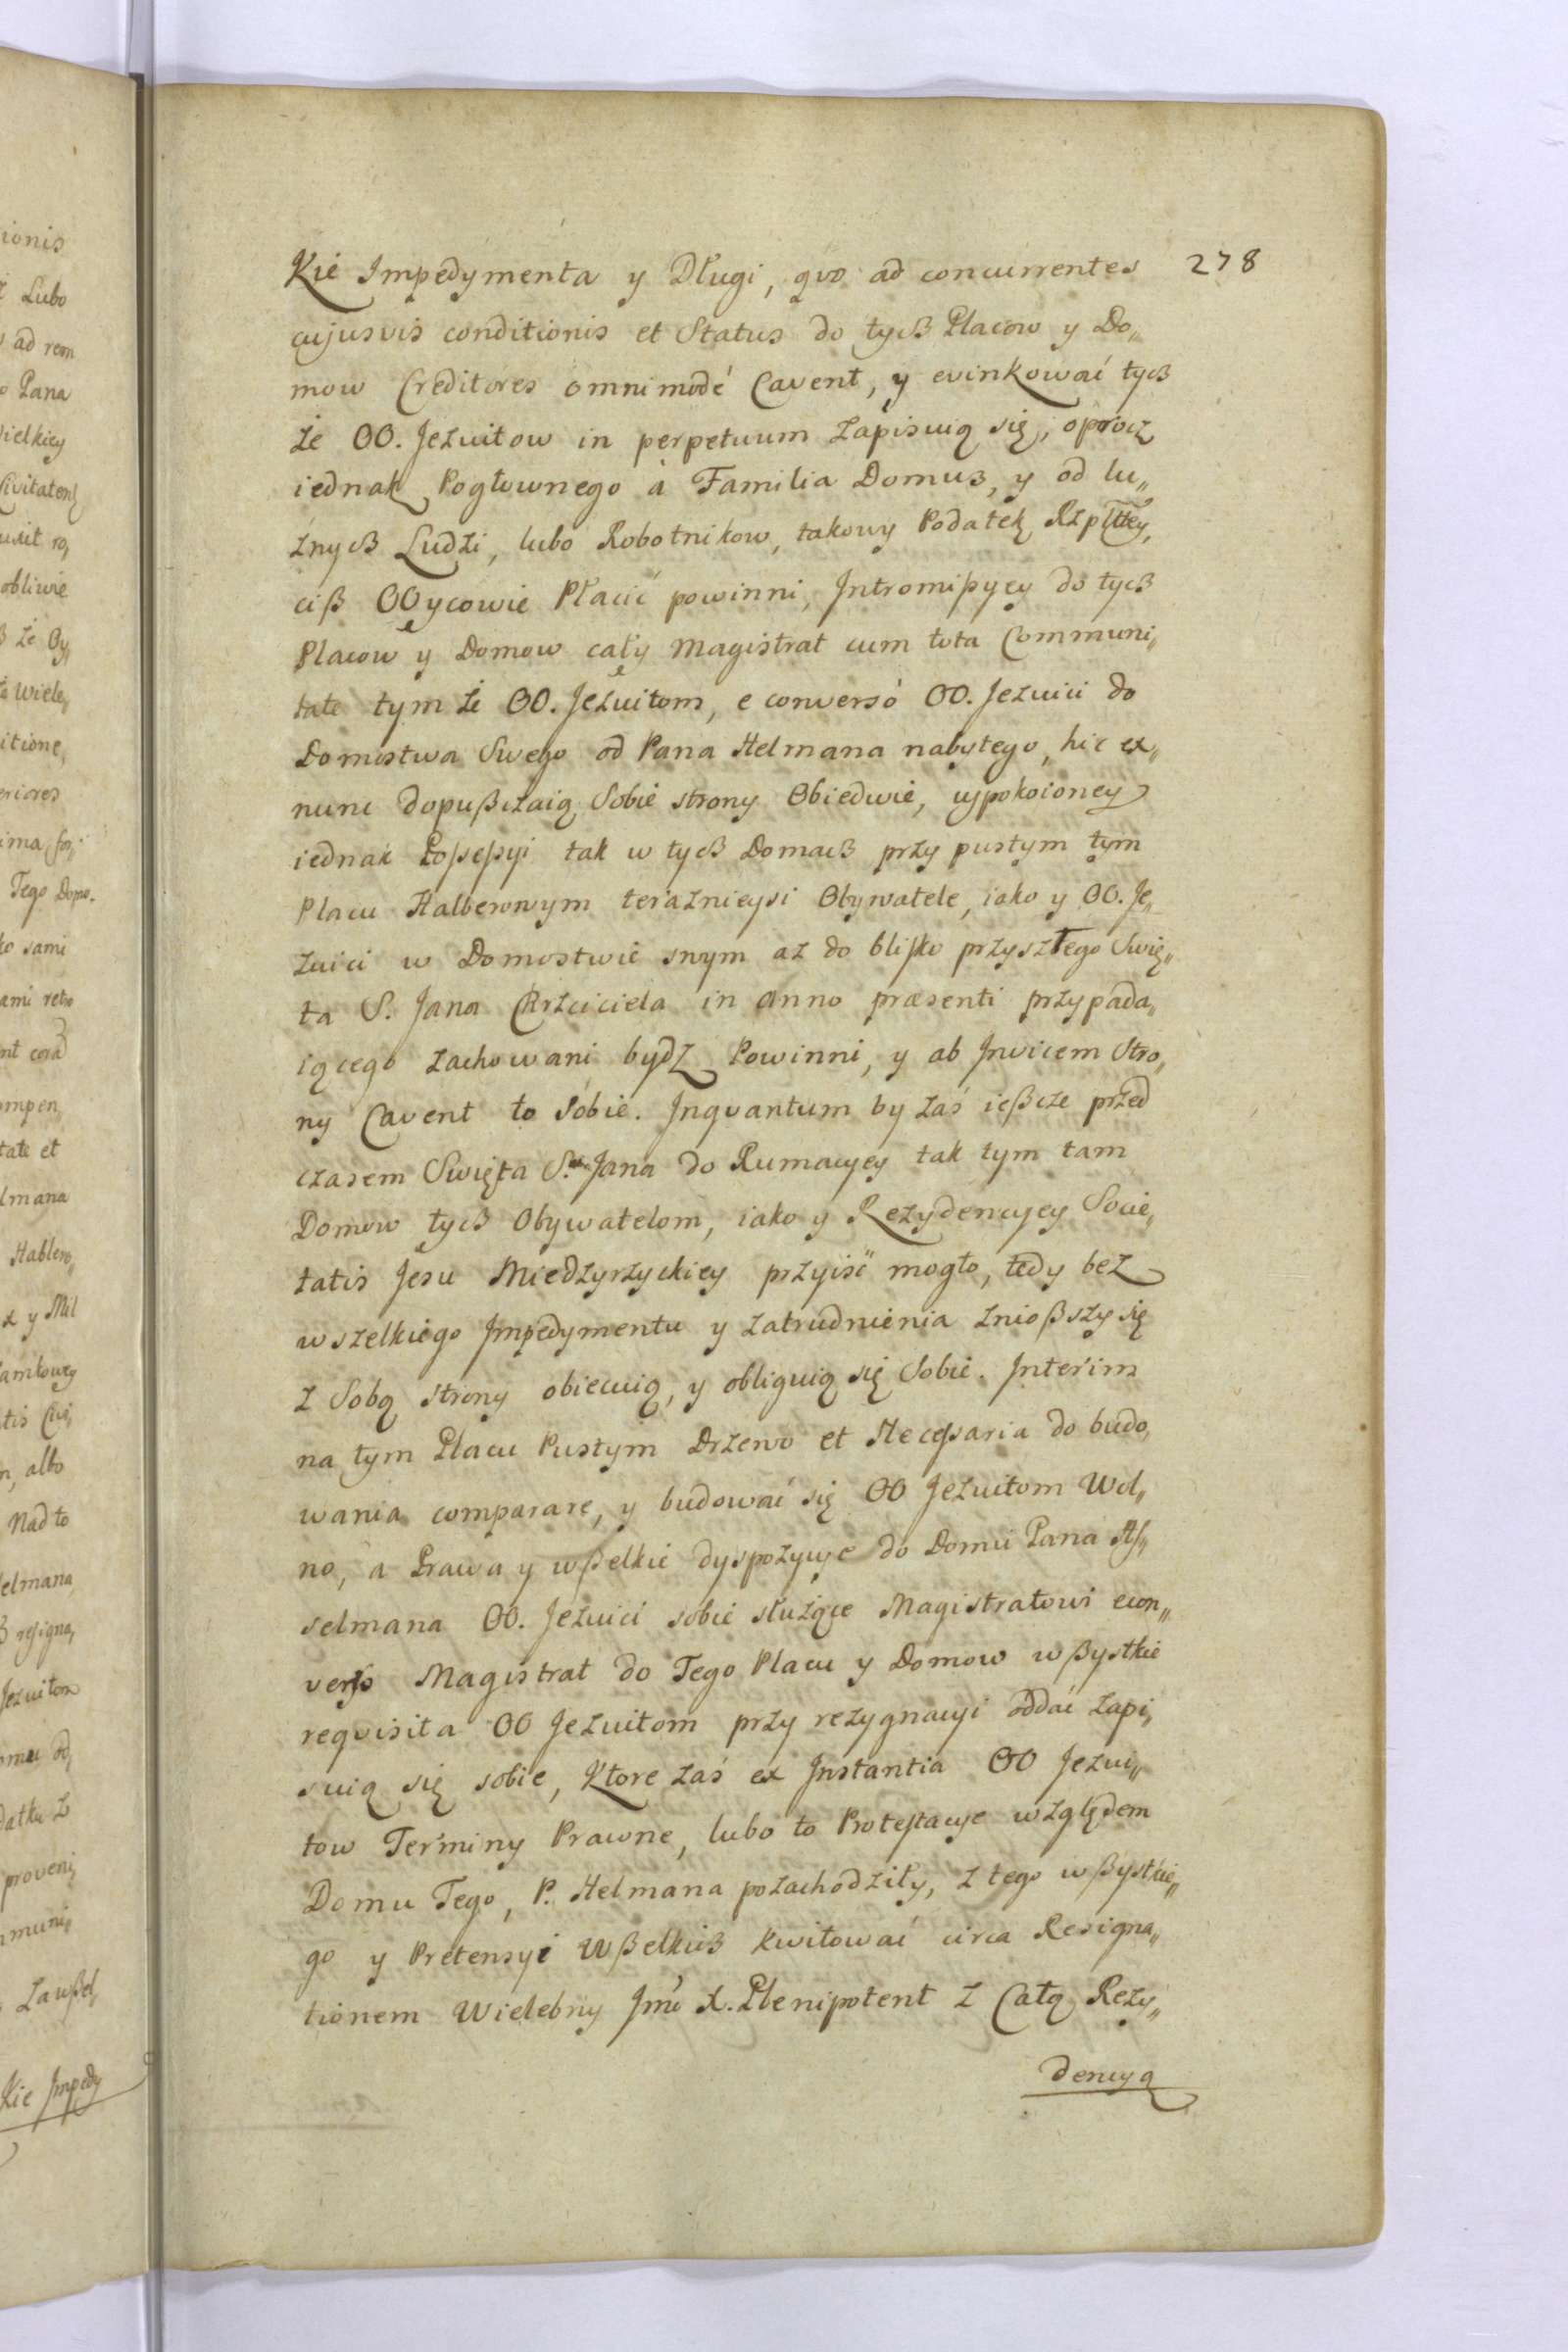 278
Kie Impedymenta y Długi, qvo ad concurrentes
cujusvis conditionis et Status do tych Placow y Do„
mow Creditores omnimodé Cavent, y evinkować tych
że OO. Jezuitow in perpetuum zapisuią się, oprocz
iednak Pogłownego à Familia Domus, y od lu„
źnych Ludzi, lubo Robotnikow, takowy Podatek Rzpltey,
ciß OOycowie Płacić powinni, Intromißyey do tych
Placow y Domow cały Magistrat cum tota Communi„
tate tym że OO. Jezuitom, e conversò OO. Jezuici do
Domostwa Swego od Pana Helmana nabytego, hic ex„
nunc dopußczaią Sobie strony Obiedwie, uspokoioney
iednak Poßeßyi tak w tych Domach przy pustym tym
Placu Halberowym teraznieysi Obywatele, iako y OO. Je„
zuici w Domostwie swym az do blisko przyszłego Swię„
ta S. Jana Chrzciciela in anno præsenti przypada„
iącego zachowani bydz Powinni, y ab Invicem Stro„
ny Cavent to Sobie. Inqvantum by zaś ießcze przed
czasem Swięta S. Jana do Rumacyey tak tym tam
Domow tych Obywatelom, iako y Rezydencyey Socie„
tatis Jesu Miedzyrzyckiey przyiść mogło, tedy bez
wszelkiego Impedymentu y zatrudnienia znioßszy się
z Sobą strony obiecuią, y obliguią się Sobie. Interim
na tym Placu Pustym Drzewo et Necessaria do budo„
wania comparare, y budować się OO Jezuitom Wol„
no, a Prawa y wßelkie dyspozycye do Domu Pana As„
selmana OO. Jezuici sobie służące Magistratowi econ„
verso Magistrat do Tego Placu y Domow wßystkie
reqvisita OO Jezuitom przy rezygnacyi oddać zapi„
suią się sobie, Ktore zaś ex Instantia OO Jezui„
tow Terminy Prawne, lubo to Protestacye względem
Domu Tego, P. Helmana pozachodziły, z tego wßystkie„
go y Pretensyi Wßelkich kwitować circa Resigna„
tionem Wielebny Jmć X. Plenipotent z Całą Rezy„
dencyą